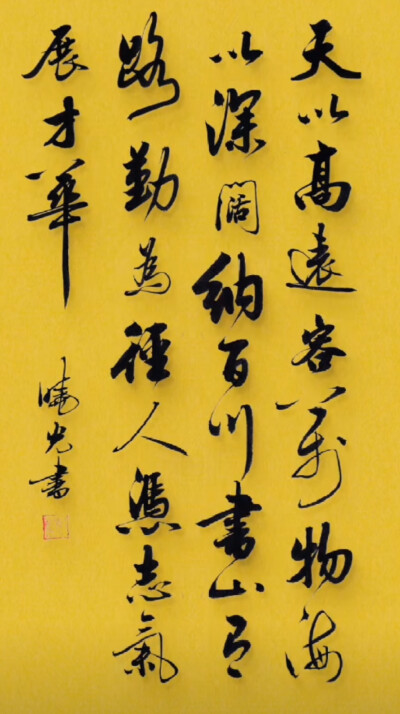 天以高遠容萬物海
以深闊納百川書山有
路勤為徑人憑志氣
展才華
曉光書